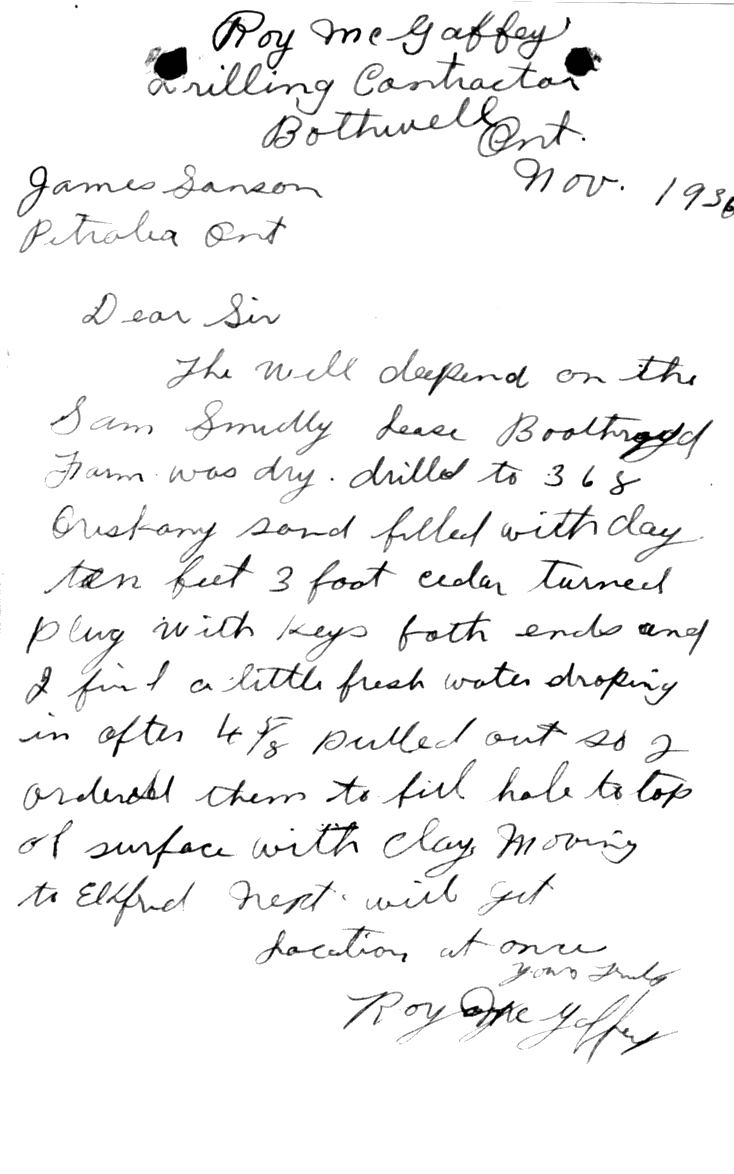 Roy McGaffey
Drilling Contractor
Bothwell Ont.
Nov. 1936
James Sanson
Petrolea Ont
Dear Sir
The well deepend on the
Sam Smidly Lease Boothroyd
Farm was dry. drilled to 368
Oriskany sand filled with clay
ten feet 3 foot cedar turned
plug with keys both ends and
I find a little fresh water droping
in after 4 5/8 pulled out so I
ordered them to fill hole to top
of surface with clay. Moving
to Ekfrid next. will get
Location at once
Yours Truly
Roy McGaffey